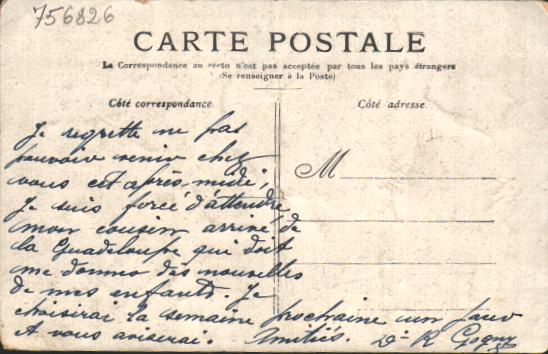 756826
CARTE POSTALE
La Correspondance au recto n'est pas acceptée par tous les pays étrangers
(Se renseigner à la Poste)
Côté correspondance.
Côté adresse.
M
Je regrette ne pas
pouvoir venir chez
vous cet après-midi;
Je suis forcé d'attendre
mon cousin arrivé de
la Guadeloupe qui doit
me donner des nouvelles
de mes enfants. Je
choisirai la semaine prochaine un jour
et vous aviserai. Amitiés. Dr R